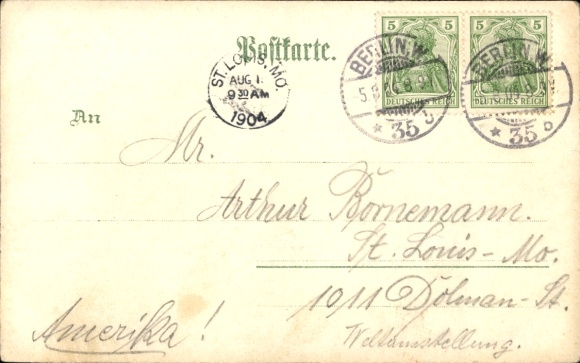 Postkarte.
5 5
DEUTSCHES REICH DEUTSCHES REICH
BERLIN.W. BERLIN.W.
* 35 * 35
ST. LOUIS, MO.
AUG 1
9 30 AM
1904
An
Mr.
Arthur Bornemann.
St. Louis-Mo.
1011 Dolman-St.
Amerika!
Weltausstellung.